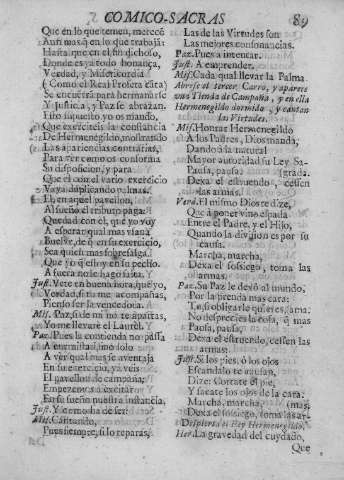 COMICO-SACRAS 89
Que en lo que temen, mereció
Aun mas q̃ en lo que trabaja:
Hasta que en el fin dichoso,
Donde es ya todo bonança,
Verdad, y Misericordia
(Como el Real Profeta cãta)
Se encuẽtrã para hermanarse
Y Justicia, y Paz se abrazan.
Esto supuesto yo os mando,
Que exerciteis la constancia
De Hermenegildo, mostrando
Las apariencias contrarias,
Para ver como os conforma
Su disposicion, y para
Que el con el vario exercicio
Vaya duplicando palmas.
El, en aquel pavellon,
Al sueño el tributo paga:
Quedad con el, que yo voy
A esperar qual mas ufana
Buelve, de q̃ en su exercicio,
Sea quien mas sobresalga.
Que yo quiesta y en su pecho.
A fuera no le hago falta.
Just. Vete en buena hora, que yo,
Verdad, si tu me acompañas,
Pienso ser la vencedora.
Mis. Paz, si de mi no te apartas,
Yo me llevaré el Laurel.
Paz. Pues la contienda no passa
A enemistad, sino solo
A ver qual mas se aventaja
En su exercicio, ya veis
El gavellon de campaña;
Empezemos a exercitar
En su sueño nuestra instancia,
Just. Y como ha de ser?
Mis. Cantando,
Pues siempre, si lo reparas,
Las de las Virtudes son
Las mejores consonancias.
Paz. Pues a intentar.
Just. A emprender.
Mis. Cada qual llevar la Palma.
Abrese el tercer Carro, y aparece
una Tienda de Campaña, y en ella
Hermenegildo dormido, y cantan
las Virtudes.
Mis. Honrar Hermenegildo
A los Padres, Dios manda,
Dando à la natural
Mayor autoridad su Ley Sa-
Pausa, pausa, (grada.
Dexa el estruendo, cessen
las armas.
Verd. El mismo Dios te dize,
Que à poner vino espada
Entre el Padre, y el Hijo,
Quando la division es por su
causa.
Marcha, marcha,
Dexa el sosiego, toma las
armas.
Paz. Su Paz le dexó al mundo,
Por la prenda mas cara:
Tu, si obligarle quieres, ama
No desprecies la cosa, q̃ mas
Pausa, pausa,
Dexa el estruendo, cessen las
armas.
Just. Si los pies, ò los ojos
Escandalo te causan,
Dize: Cortate el pie,
Y sacate los ojos de la cara.
Marcha, marcha, (mas.
Dexa el sosiego, toma las ar-
Despierta el Rey Hermenegildo.
Her. La gravedad del cuydado,
Que